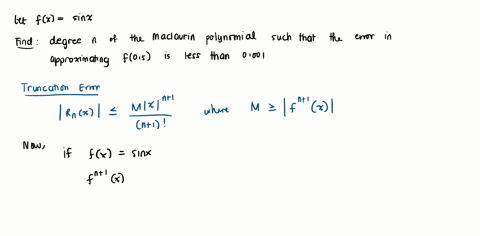 let f(x) = sinx
Find: degree n of the maclaurin polynomial such that the error in
approximating f(0.5) is less than 0.001
Truncation Error
|Rn(x)| ≤ M|x|^{n+1} / (n+1)! where M ≥ |f^{n+1}(x)|
Now, if f(x) = sinx
f^{n+1}(x)